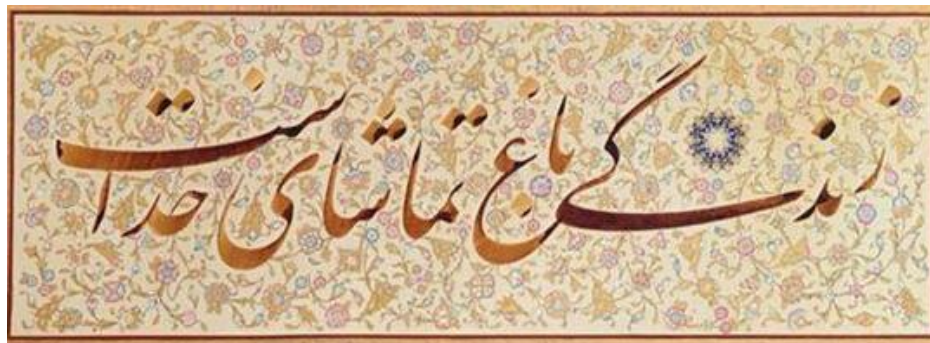 زندگی باغ تماشای خداست